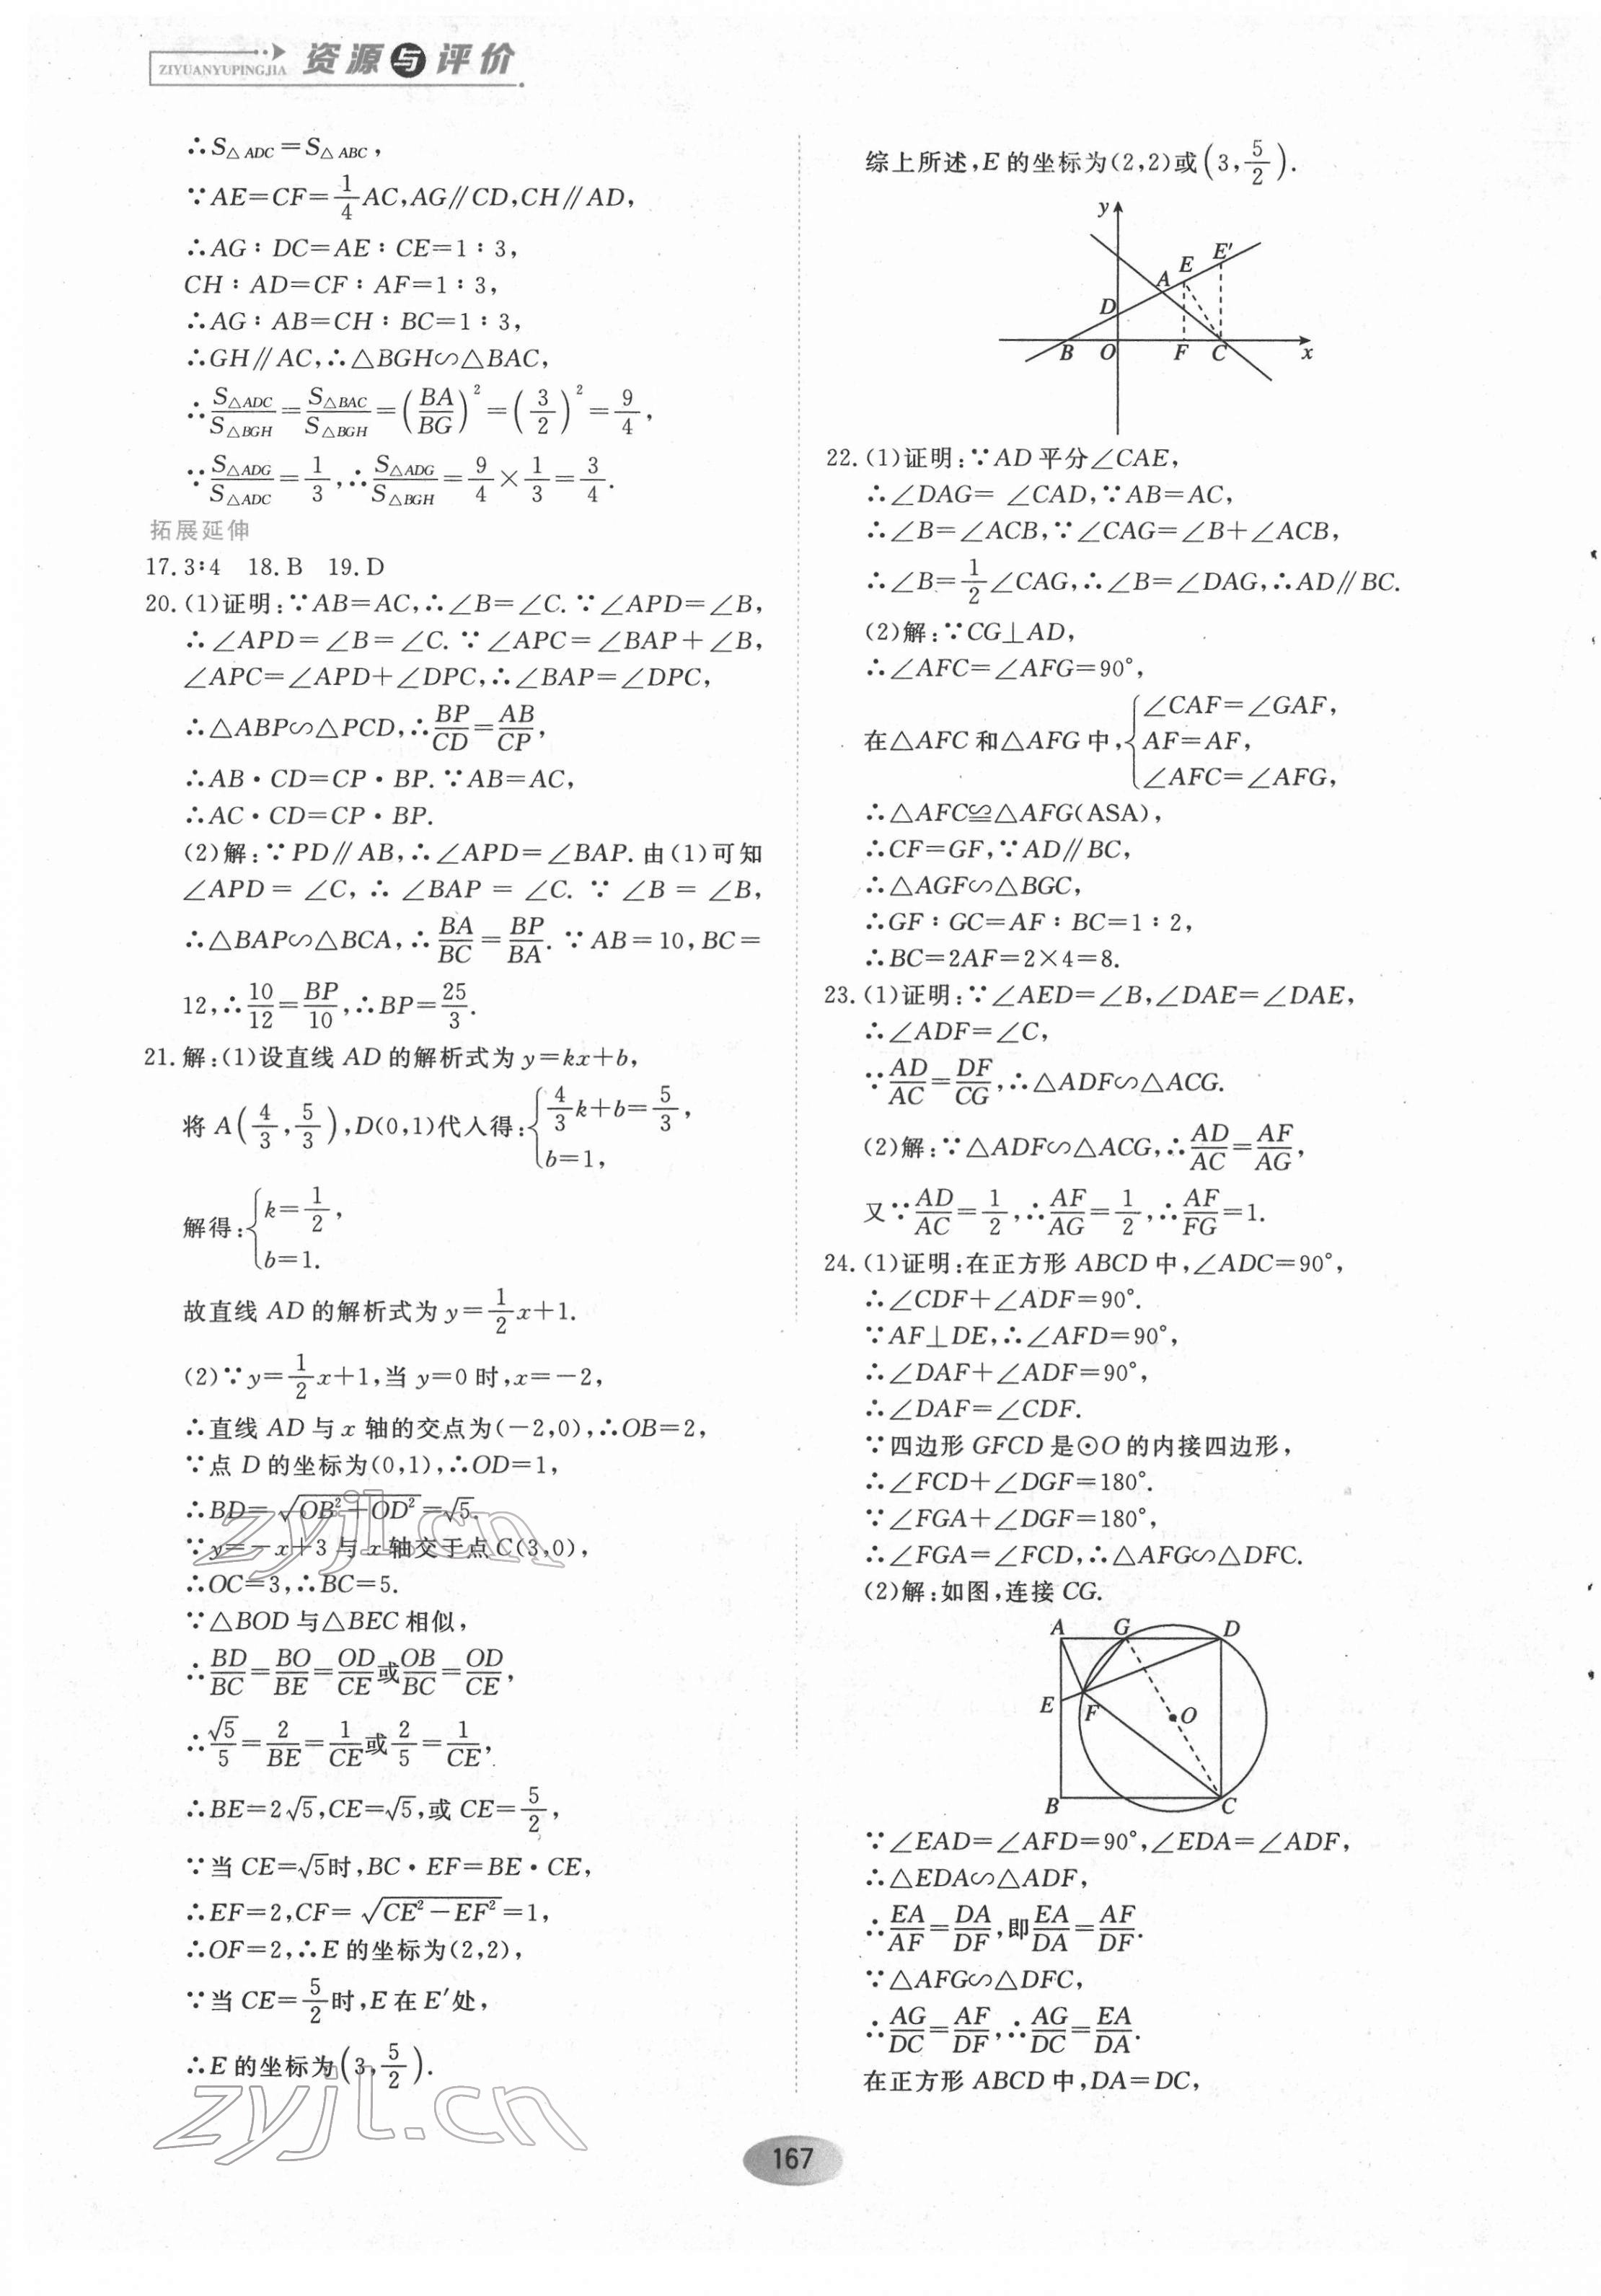 ZIYUANYUPINGJIA 资源与评价
∴S△ADC=S△ABC,
∵AE=CF=1/4AC,AG∥CD,CH∥AD,
∴AG∶DC=AE∶CE=1∶3,
CH∶AD=CF∶AF=1∶3,
∴AG∶AB=CH∶BC=1∶3,
∴GH∥AC,∴△BGH∽△BAC,
∴S△ADC/S△BGH=S△BAC/S△BGH=(BA/BG)²=(3/2)²=9/4,
∵S△ADG/S△ADC=1/3,∴S△ADG/S△BGH=9/4×1/3=3/4.
拓展延伸
17.3∶4 18.B 19.D
20.(1)证明:∵AB=AC,∴∠B=∠C.∵∠APD=∠B,
∴∠APD=∠B=∠C.∵∠APC=∠BAP+∠B,
∠APC=∠APD+∠DPC,∴∠BAP=∠DPC,
∴△ABP∽△PCD,∴BP/CD=AB/CP,
∴AB·CD=CP·BP.∵AB=AC,
∴AC·CD=CP·BP.
(2)解:∵PD∥AB,∴∠APD=∠BAP.由(1)可知
∠APD=∠C,∴∠BAP=∠C.∵∠B=∠B,
∴△BAP∽△BCA,∴BA/BC=BP/BA.∵AB=10,BC=
12,∴10/12=BP/10,∴BP=25/3.
21.解:(1)设直线AD的解析式为y=kx+b,
将A(4/3,5/3),D(0,1)代入得:{4/3k+b=5/3,
b=1,
解得:{k=1/2,
b=1.
故直线AD的解析式为y=1/2x+1.
(2)∵y=1/2x+1,当y=0时,x=-2,
∴直线AD与x轴的交点为(-2,0),∴OB=2,
∵点D的坐标为(0,1),∴OD=1,
∴BD=√(OB²+OD²)=√5.
∵y=-x+3与x轴交于点C(3,0),
∴OC=3,∴BC=5.
∵△BOD与△BEC相似,
∴BD/BC=BO/BE=OD/CE或OB/BC=OD/CE,
∴√5/5=2/BE=1/CE或2/5=1/CE,
∴BE=2√5,CE=√5,或CE=5/2,
∵当CE=√5时,BC·EF=BE·CE,
∴EF=2,CF=√(CE²-EF²)=1,
∴OF=2,∴E的坐标为(2,2),
∵当CE=5/2时,E在E′处,
∴E的坐标为(3,5/2).
综上所述,E的坐标为(2,2)或(3,5/2).
y
E′
E
A
D
B O F C x
22.(1)证明:∵AD平分∠CAE,
∴∠DAG=∠CAD,∵AB=AC,
∴∠B=∠ACB,∵∠CAG=∠B+∠ACB,
∴∠B=1/2∠CAG,∴∠B=∠DAG,∴AD∥BC.
(2)解:∵CG⊥AD,
∴∠AFC=∠AFG=90°,
在△AFC和△AFG中,{∠CAF=∠GAF,
AF=AF,
∠AFC=∠AFG,
∴△AFC≌△AFG(ASA),
∴CF=GF,∵AD∥BC,
∴△AGF∽△BGC,
∴GF∶GC=AF∶BC=1∶2,
∴BC=2AF=2×4=8.
23.(1)证明:∵∠AED=∠B,∠DAE=∠DAE,
∴∠ADF=∠C,
∵AD/AC=DF/CG,∴△ADF∽△ACG.
(2)解:∵△ADF∽△ACG,∴AD/AC=AF/AG,
又∵AD/AC=1/2,∴AF/AG=1/2,∴AF/FG=1.
24.(1)证明:在正方形ABCD中,∠ADC=90°,
∴∠CDF+∠ADF=90°.
∵AF⊥DE,∴∠AFD=90°,
∴∠DAF+∠ADF=90°,
∴∠DAF=∠CDF.
∵四边形GFCD是⊙O的内接四边形,
∴∠FCD+∠DGF=180°.
∵∠FGA+∠DGF=180°,
∴∠FGA=∠FCD,∴△AFG∽△DFC.
(2)解:如图,连接CG.
A G D
E F O
B C
∵∠EAD=∠AFD=90°,∠EDA=∠ADF,
∴△EDA∽△ADF,
∴EA/AF=DA/DF,即EA/DA=AF/DF.
∵△AFG∽△DFC,
∴AG/DC=AF/DF,∴AG/DC=EA/DA.
在正方形ABCD中,DA=DC,
167
zyjl.cn
zyjl.cn